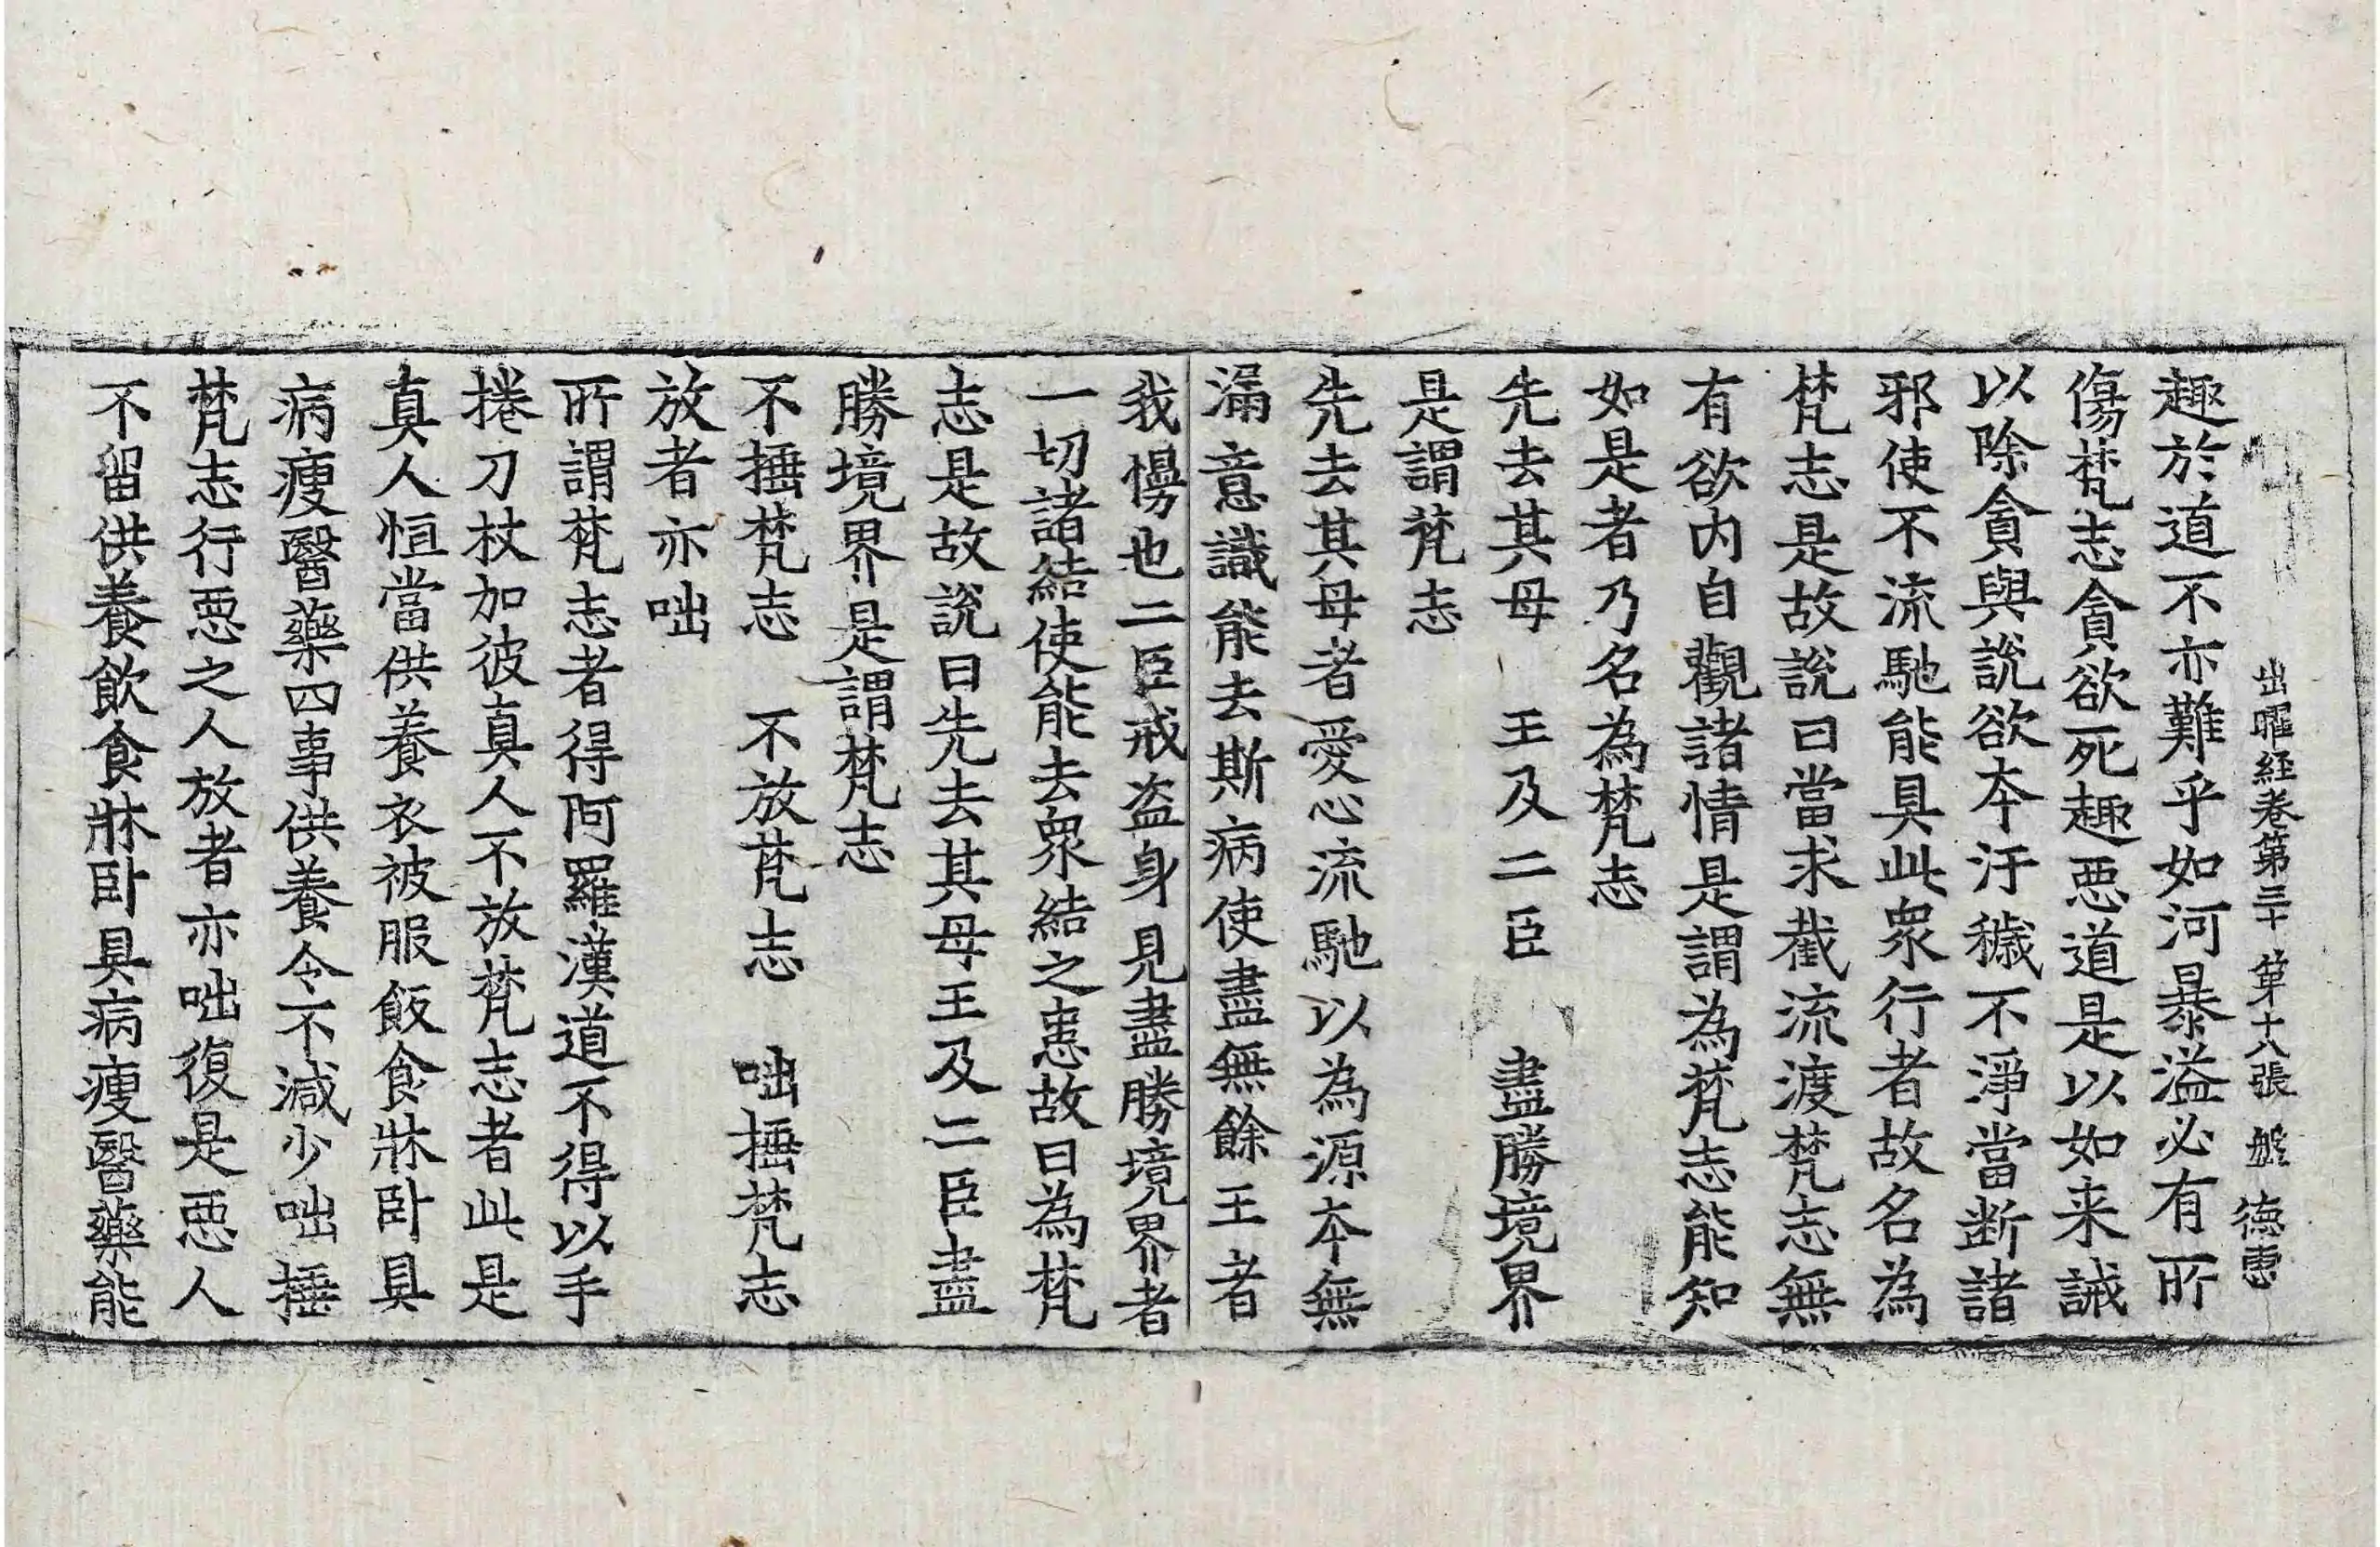 出曜経卷第三十 第十八張 盤 德惠
趣於道不亦難乎如河暴溢必有所
傷梵志貪欲死趣惡道是以如来誡
以除貪與說欲本汙穢不淨當断諸
邪使不流馳能具此衆行者故名為
梵志是故說曰當求截流渡梵志無
有欲内自觀諸情是謂為梵志能知
如是者乃名為梵志
先去其母 王及二臣 盡勝境界
是謂梵志
先去其母者愛心流馳以為源本無
漏意識能去斯病使盡無餘王者
我慢也二臣戒盗身見盡勝境界者
一切諸結使能去衆結之患故曰為梵
志是故說曰先去其母王及二臣盡
勝境界是謂梵志
不捶梵志 不放梵志 咄捶梵志
放者亦咄
所謂梵志者得阿羅漢道不得以手
捲刀杖加彼真人不放梵志者此是
真人恒當供養衣被服飯食牀卧具
病瘦醫藥四事供養令不減少咄捶
梵志行惡之人放者亦咄復是惡人
不留供養飲食牀卧具病瘦醫藥能